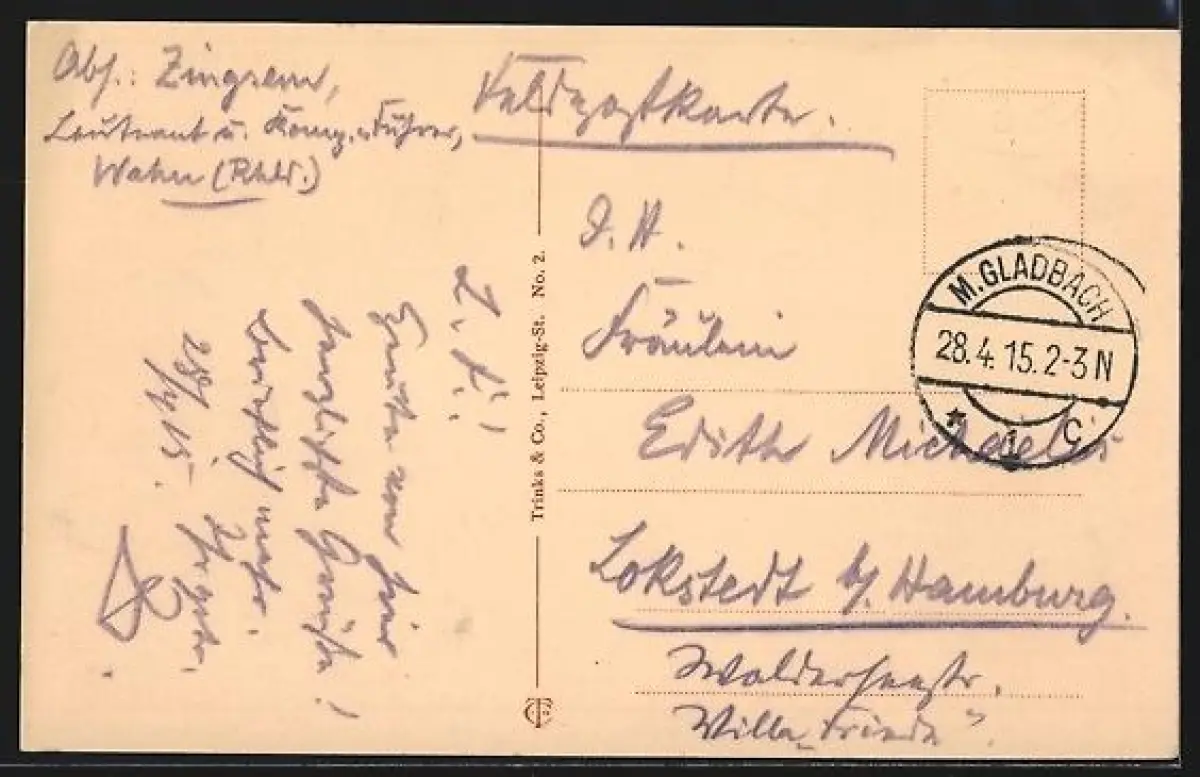 Abs.: Zingsem,
Leutnant u. Komp.-Führer,
Wahn (Rhld.)
Feldpostkarte.
I. H.
Fräulein
Edith Michaelis
Lokstedt b/ Hamburg.
Walderseestr.
Villa „Frieda".
M. GLADBACH
28.4.15. 2-3 N
* 1 c
Trinks & Co., Leipzig-St. No. 2.
L. E.!
Heute von hier
herzlichste Grüße!
Brieflich mehr.
Ihr
28/4. 15.